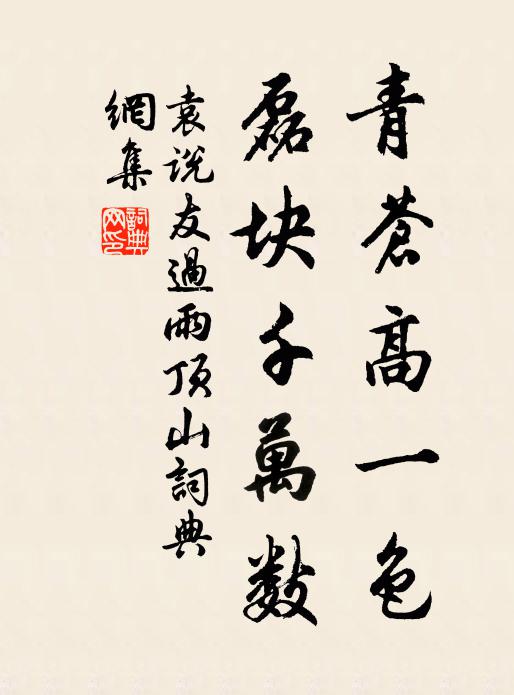 青蒼高一色
磊块千萬数
袁说友過雨頂山詞典
網集
詞典網印